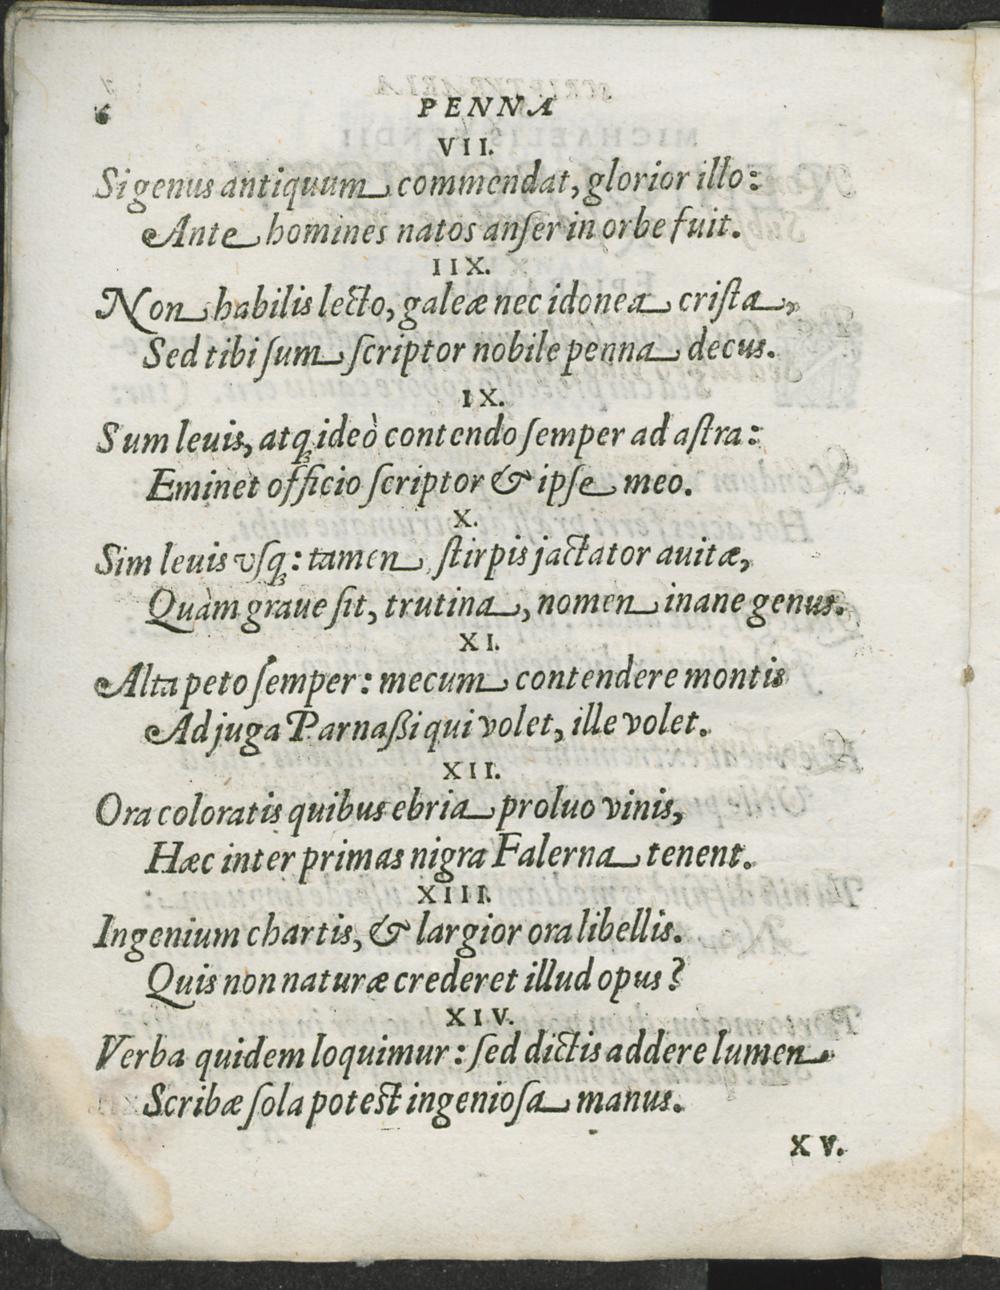 6
PENNA
VII.
Si genus antiquum commendat, glorior illo:
Ante homines natos anſer in orbe fuit.
IIX.
Non habilis lecto, galeæ nec idonea criſta,
Sed tibi ſum ſcriptor nobile penna decus.
IX.
Sum leuis, atq; ideò contendo ſemper ad aſtra:
Eminet officio ſcriptor & ipſe meo.
X.
Sim leuis vſq;: tamen ſtirpis jactator auitæ,
Quàm graue ſit, trutina, nomen inane genus.
XI.
Alta peto ſemper: mecum contendere montis
Ad juga Parnaßi qui volet, ille volet.
XII.
Ora coloratis quibus ebria proluo vinis,
Hæc inter primas nigra Falerna tenent.
XIII.
Ingenium chartis, & largior ora libellis.
Quis non naturæ crederet illud opus?
XIV.
Verba quidem loquimur: ſed dictis addere lumen
Scribæ ſola poteſt ingenioſa manus.
XV.